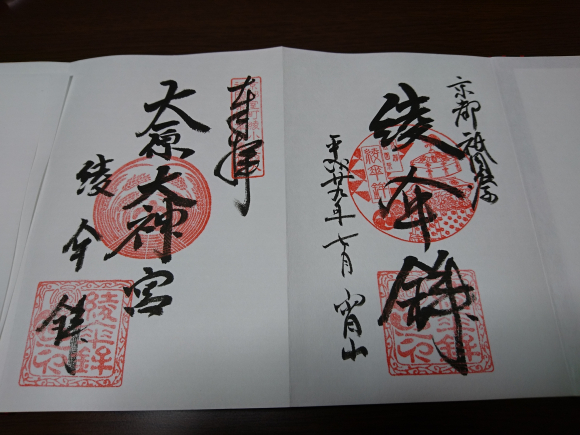 京都 祇園祭
綾傘鉾
平成廿九年七月 宵山
綾傘鉾
奉拝
大原大神宮
綾傘鉾
綾傘鉾